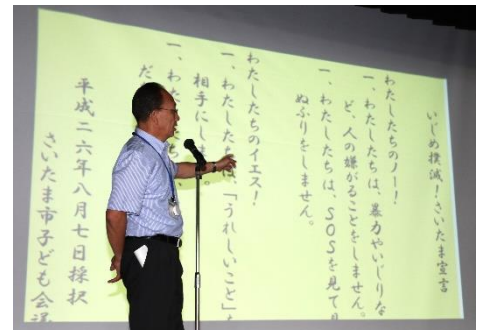 いじめ撲滅!さいたま宣言
わたしたちのノー!
一、わたしたちは、暴力やいじりな
ど、人の嫌がることをしません。
一、わたしたちは、SOSを見て見
ぬふりをしません。
わたしたちのイエス!
一、わたしたちは、「うれしいこと」を
相手にしま
一、わたしたち
だ
平成二六年八月七日採択
さいたま市子ども会議